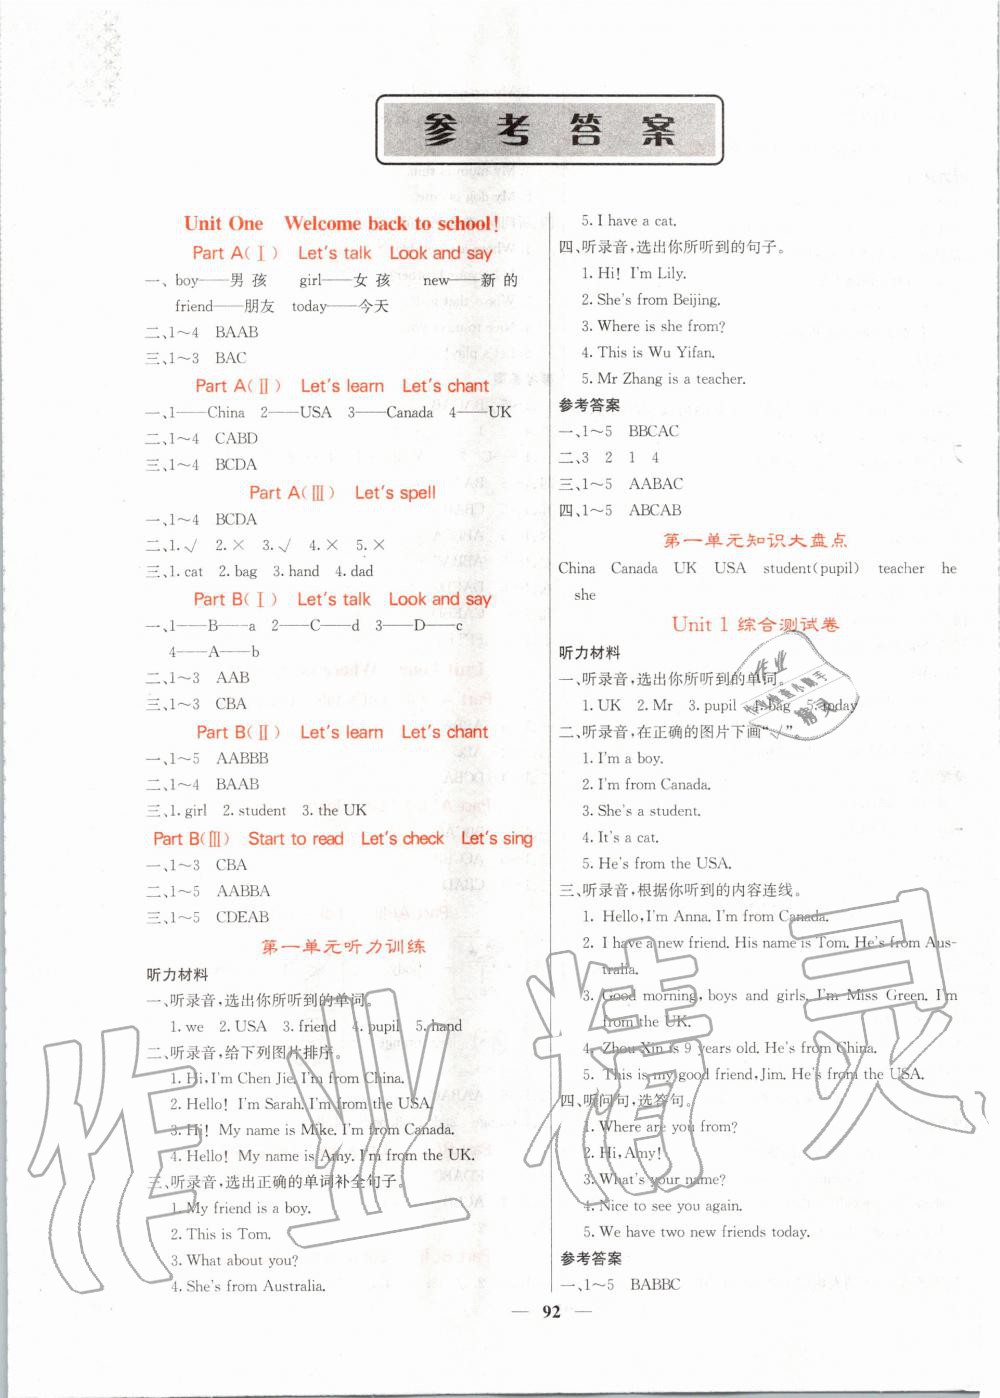 参考答案
Unit One Welcome back to school!
Part A(Ⅰ) Let's talk Look and say
一、boy——男孩 girl——女孩 new——新的
friend——朋友 today——今天
二、1～4 BAAB
三、1～3 BAC
Part A(Ⅱ) Let's learn Let's chant
一、1——China 2——USA 3——Canada 4——UK
二、1～4 CABD
三、1～4 BCDA
Part A(Ⅲ) Let's spell
一、1～4 BCDA
二、1.√ 2.× 3.√ 4.× 5.×
三、1. cat 2. bag 3. hand 4. dad
Part B(Ⅰ) Let's talk Look and say
一、1——B——a 2——C——d 3——D——c
4——A——b
二、1～3 AAB
三、1～3 CBA
Part B(Ⅱ) Let's learn Let's chant
一、1～5 AABBB
二、1～4 BAAB
三、1. girl 2. student 3. the UK
Part B(Ⅲ) Start to read Let's check Let's sing
一、1～3 CBA
二、1～5 AABBA
三、1～5 CDEAB
第一单元听力训练
听力材料
一、听录音,选出你所听到的单词。
1. we 2. USA 3. friend 4. pupil 5. hand
二、听录音,给下列图片排序。
1. Hi, I'm Chen Jie. I'm from China.
2. Hello! I'm Sarah. I'm from the USA.
3. Hi! My name is Mike. I'm from Canada.
4. Hello! My name is Amy. I'm from the UK.
三、听录音,选出正确的单词补全句子。
1. My friend is a boy.
2. This is Tom.
3. What about you?
4. She's from Australia.
5. I have a cat.
四、听录音,选出你所听到的句子。
1. Hi! I'm Lily.
2. She's from Beijing.
3. Where is she from?
4. This is Wu Yifan.
5. Mr Zhang is a teacher.
参考答案
一、1～5 BBCAC
二、3 2 1 4
三、1～5 AABAC
四、1～5 ABCAB
第一单元知识大盘点
China Canada UK USA student(pupil) teacher he
she
Unit 1 综合测试卷
听力材料
一、听录音,选出你所听到的单词。
1. UK 2. Mr 3. pupil 4. bag 5. today
二、听录音,在正确的图片下画“√”。
1. I'm a boy.
2. I'm from Canada.
3. She's a student.
4. It's a cat.
5. He's from the USA.
三、听录音,根据你听到的内容连线。
1. Hello, I'm Anna. I'm from Canada.
2. I have a new friend. His name is Tom. He's from Aus-
tralia.
3. Good morning, boys and girls. I'm Miss Green. I'm
from the UK.
4. Zhou Xin is 9 years old. He's from China.
5. This is my good friend, Jim. He's from the USA.
四、听问句,选答句。
1. Where are you from?
2. Hi, Amy!
3. What's your name?
4. Nice to see you again.
5. We have two new friends today.
参考答案
一、1～5 BABBC
— 92 —
作业精灵